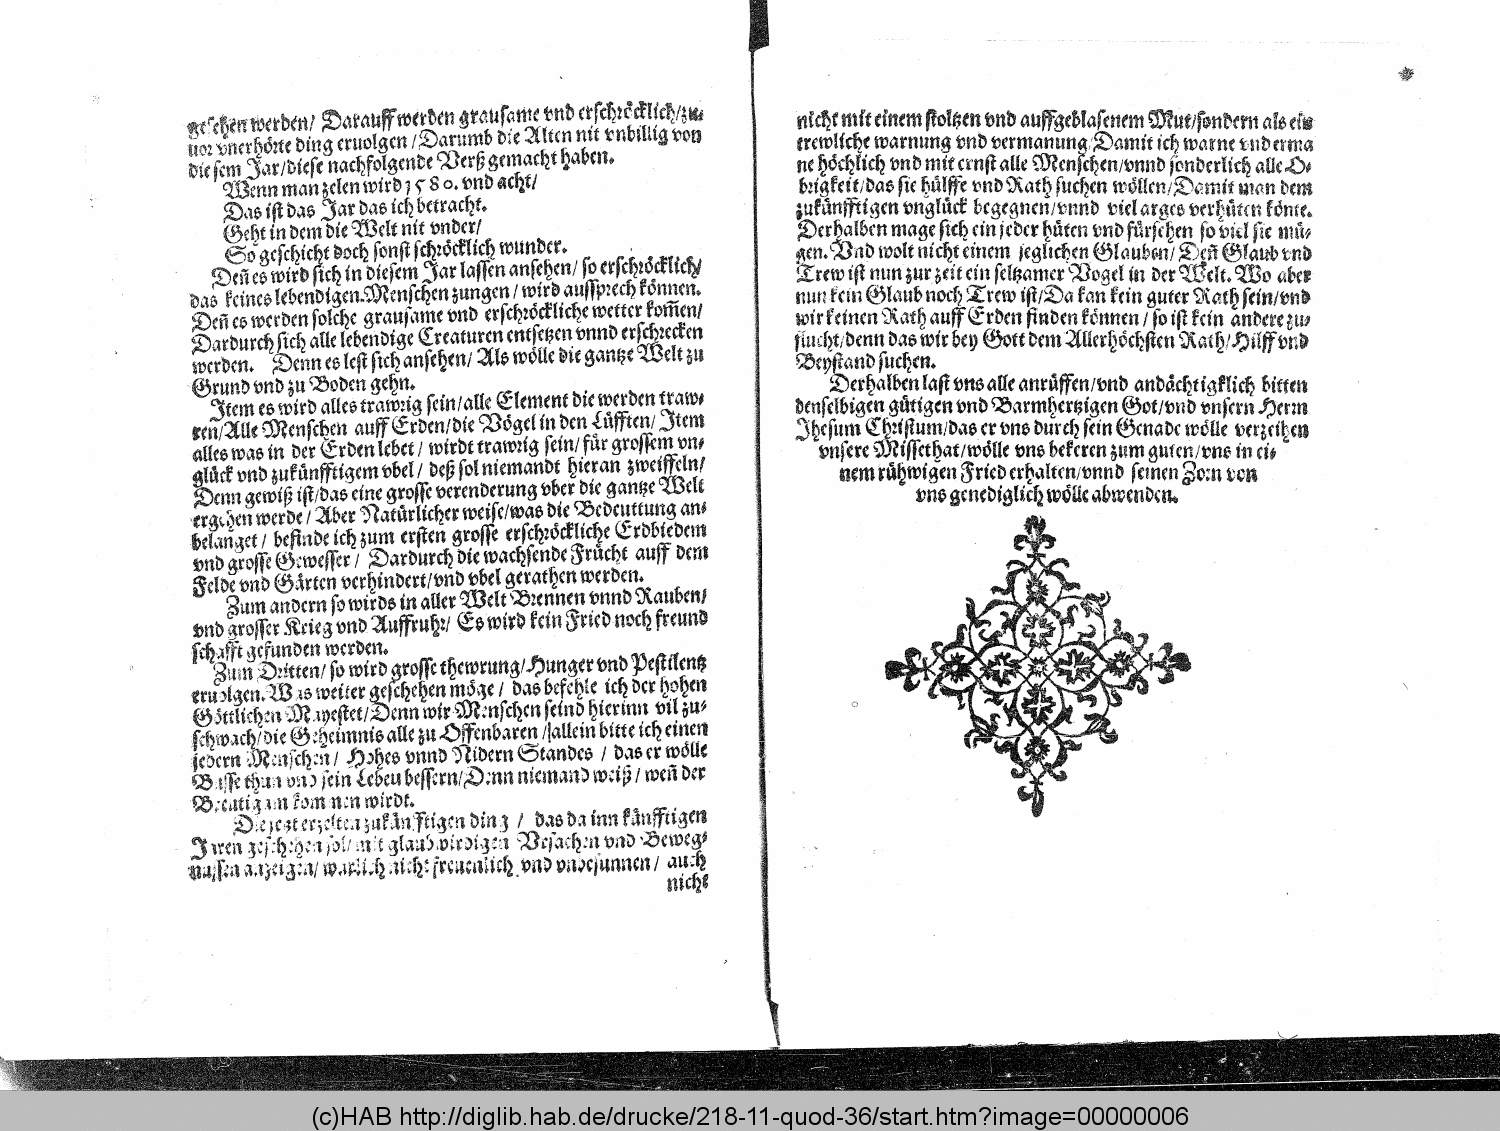 gesehen werden/ Darauff werden grausame vnd erschröcklich/zu-
uor vnerhörte ding eruolgen/Darumb die Alten nit vnbillig von
diesem Jar/diese nachfolgende Verß gemacht haben.
Wenn man zelen wird 1580. vnd acht/
Das ist das Jar das ich betracht.
Geht in dem die Welt nit vnder/
So geschicht doch sonst schröcklich wunder.
Deñ es wird sich in diesem Jar lassen ansehen/ so erschröcklich/
das keines lebendigen Menschen zungen/ wird aussprech können.
Deñ es werden solche grausame vnd erschröckliche wetter kom̃en/
Dardurch sich alle lebendige Creaturen entsetzen vnnd erschrecken
werden. Denn es lest sich ansehen/ Als wölle die gantze Welt zu
Grund vnd zu Boden gehn.
Item es wird alles trawrig sein/alle Element die werden traw-
ren/Alle Menschen auff Erden/die Vögel in den Lüfften/ Item
alles was in der Erden lebet/ wirdt trawrig sein/ für grossem vn-
glück vnd zukünfftigem vbel/ deß sol niemandt hieran zweiffeln/
Denn gewiß ist/das eine grosse verenderung vber die gantze Welt
ergehen werde/ Aber Natürlicher weise/was die Bedeuttung an-
belanget/ befinde ich zum ersten grosse erschröckliche Erdbiedem
vnd grosse Gewesser/ Dardurch die wachsende Frücht auff dem
Felde vnd Gärten verhindert/vnd vbel gerathen werden.
Zum andern so wirds in aller Welt Brennen vnnd Rauben/
vnd grosser Krieg vnd Auffruhr/ Es wird kein Fried noch freund
schafft gefunden werden.
Zum Dritten/ so wird grosse thewrung/Hunger vnd Pestilentz
eruolgen. Was weiter geschehen möge/ das befehle ich der hohen
Göttlichen Mayestet/Denn wir Menschen seind hierinn vil zu-
schwach/die Geheimnis alle zu Offenbaren/allein bitte ich einen
jedern Menschen/ Hohes vnnd Nidern Standes/ das er wölle
Busse thun vnd sein Leben bessern/Denn niemand weiß/ weñ der
Breutigam kommen wirdt.
Die jetzt erzelten zukünfftigen ding/ das da inn künfftigen
Jaren geschehen sol/ mit glaubwirdigen Vrsachen vnd Beweg-
nussen anzeigen/ warlich nicht freuenlich vnd vnbesunnen/ auch
nicht
nicht mit einem stoltzen vnd auffgeblasenem Mut/sondern als ein
trewliche warnung vnd vermanung/Damit ich warne vnd erma
ne höchlich vnd mit ernst alle Menschen/vnnd sonderlich alle O-
brigkeit/das sie hülffe vnd Rath suchen wöllen/Damit man dem
zukünfftigen vnglück begegnen/vnnd viel arges verhüten könte.
Derhalben mage sich ein jeder hüten vnd fürsehen so viel sie mü-
gen. Vnd wolt nicht einem jeglichen Glauben/ Deñ Glaub vnd
Trew ist nun zur zeit ein seltzamer Vogel in der Welt. Wo aber
nun kein Glaub noch Trew ist/Da kan kein guter Rath sein/vnd
wir keinen Rath auff Erden finden können/ so ist kein andere zu-
flucht/denn das wir bey Gott dem Allerhöchsten Rath/Hilff vnd
Beystand suchen.
Derhalben last vns alle anrüffen/vnd andächtigklich bitten
denselbigen gütigen vnd Barmhertzigen Got/vnd vnsern Herrn
Jhesum Christum/das er vns durch sein Genade wölle verzeihen
vnsere Missethat/wölle vns bekeren zum guten/vns in ei-
nem rühwigen Fried erhalten/vnnd seinen Zorn von
vns genediglich wölle abwenden.
(c)HAB http://diglib.hab.de/drucke/218-11-quod-36/start.htm?image=00000006